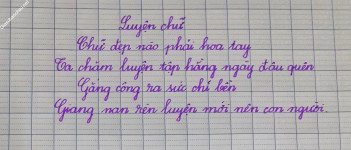 Luyện chữ
Chữ đẹp nào phải hoa tay
Ta chăm luyện tập hằng ngày đâu quên
Gắng công ra sức chí bền
Gian nan rèn luyện mới nên con người.